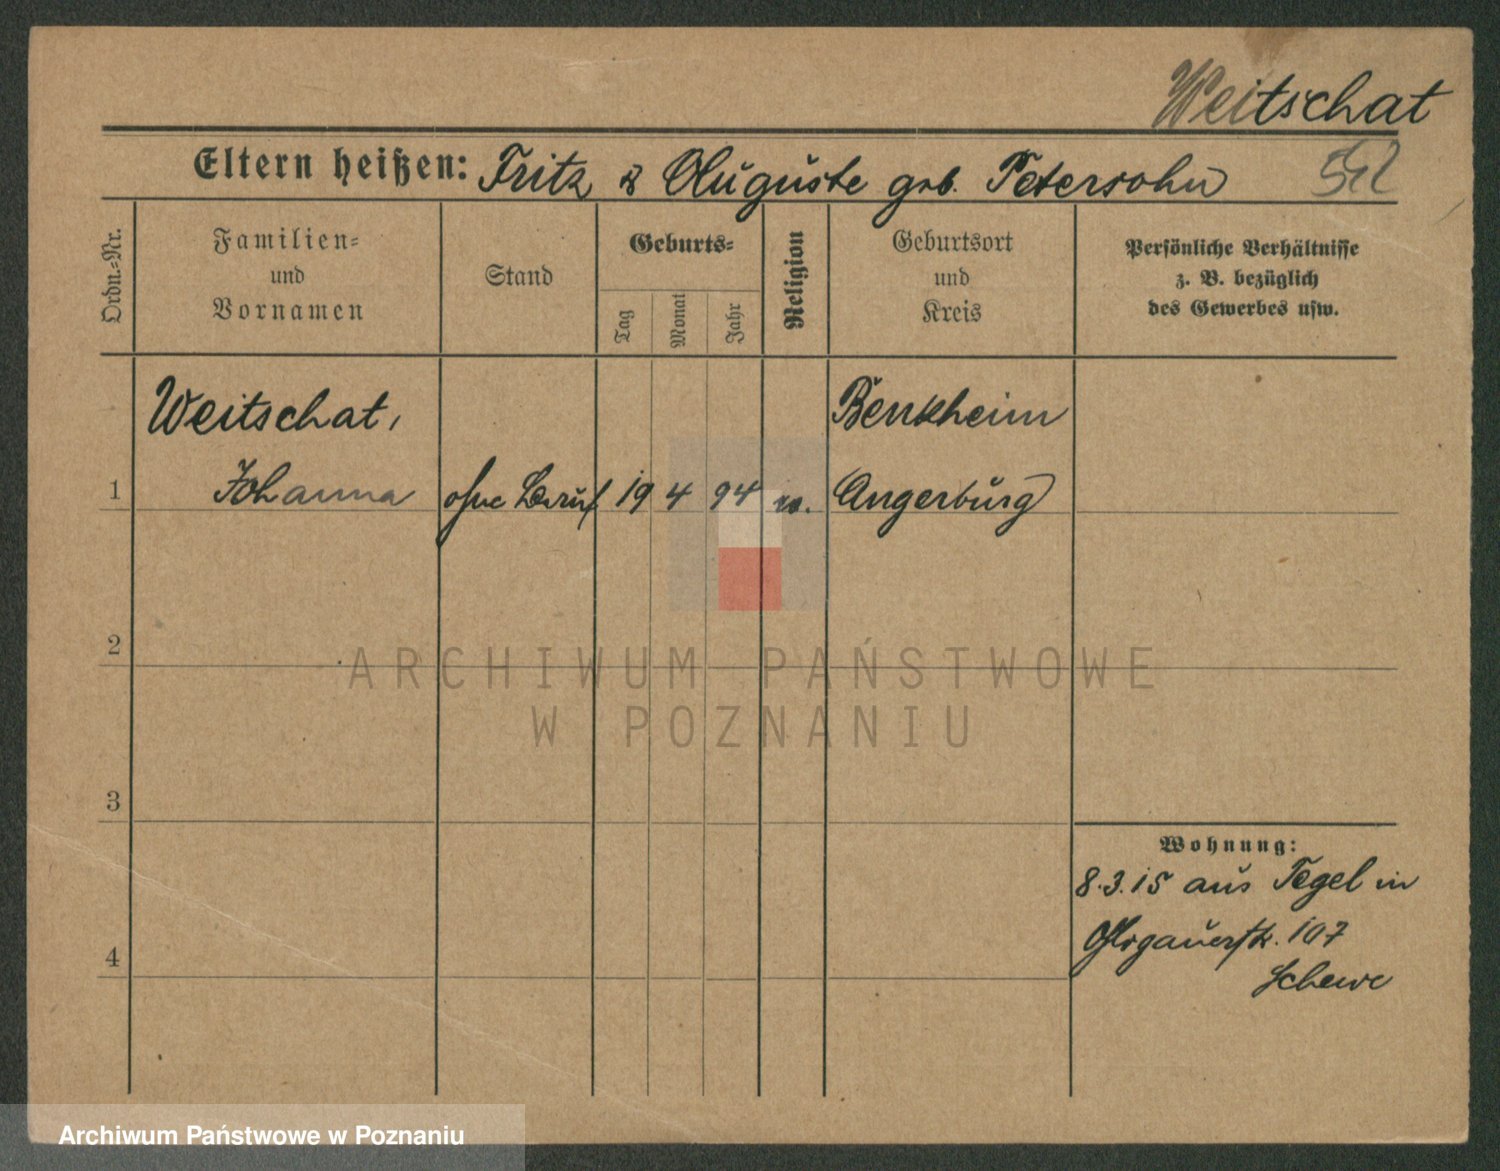 Weitschat
Eltern heißen: Fritz & Auguste geb. Petersohn
Ordn.-Nr.
Familien-
und
Vornamen
Stand
Geburts-
Tag
Monat
Jahr
Religion
Geburtsort
und
Kreis
Persönliche Verhältnisse
z. B. bezüglich
des Gewerbes usw.
Weitschat,
Benkheim
1 Johanna ohne Beruf 19 4 94 ev. (Angerburg)
2
ARCHIWUM PAŃSTWOWE
W POZNANIU
3
Wohnung:
8.3.15 aus Tegel in
Glogauerstr. 107
Schewe
4
Archiwum Państwowe w Poznaniu